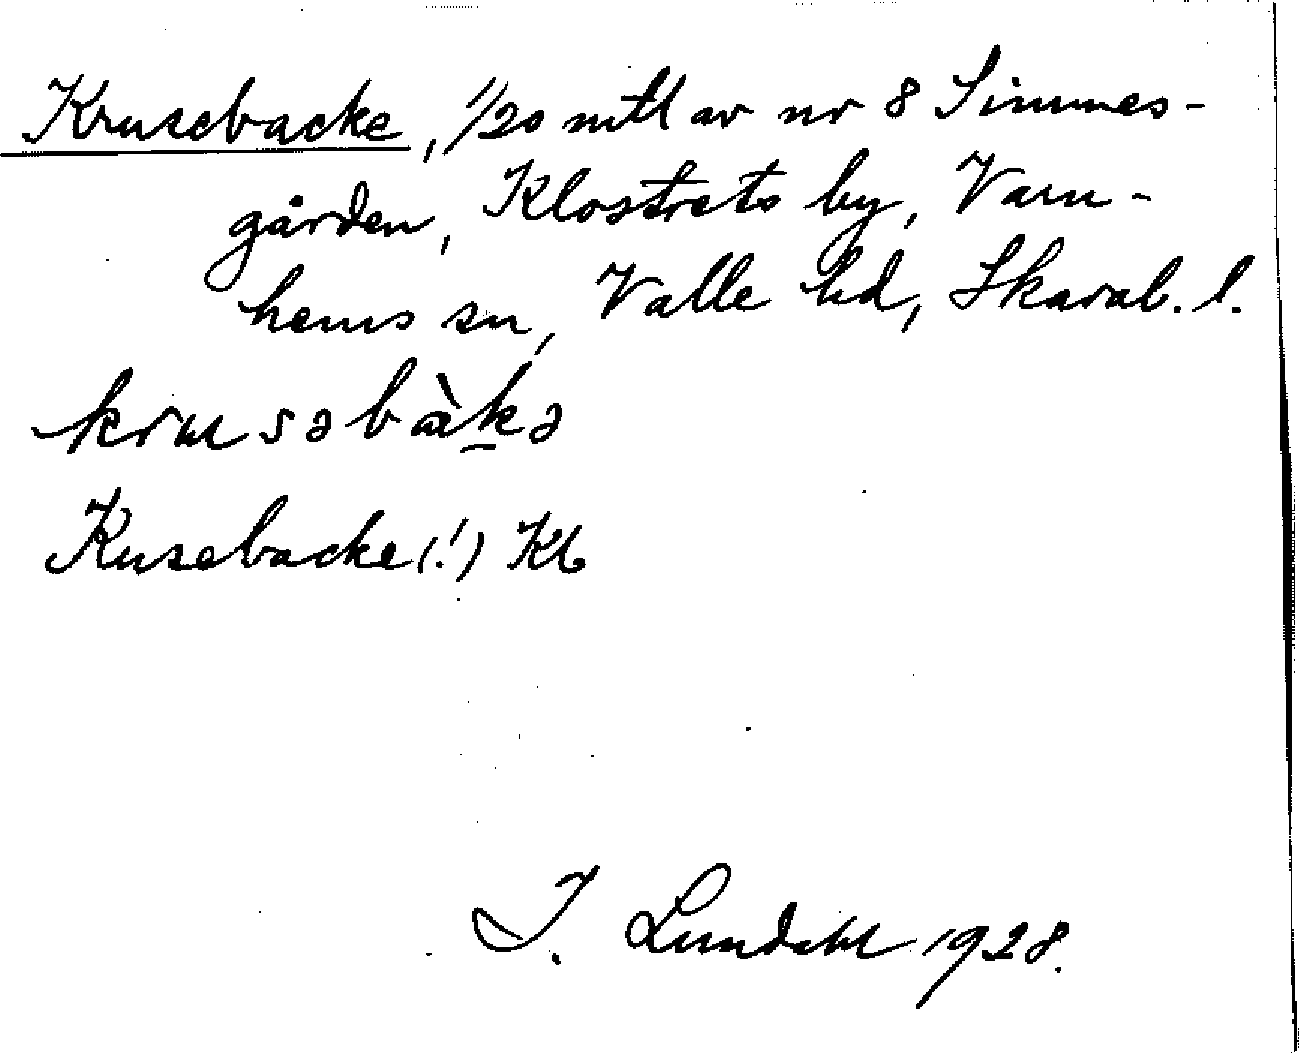 Krusebacke, 1/20 mtl av nr 8 Simmes-
gården, Klostrets by, Varn-
hems sn, Valle hd, Skarab. l.
krusəbàkə
Kusebacke(!) Kb
I. Lundahl 1928.